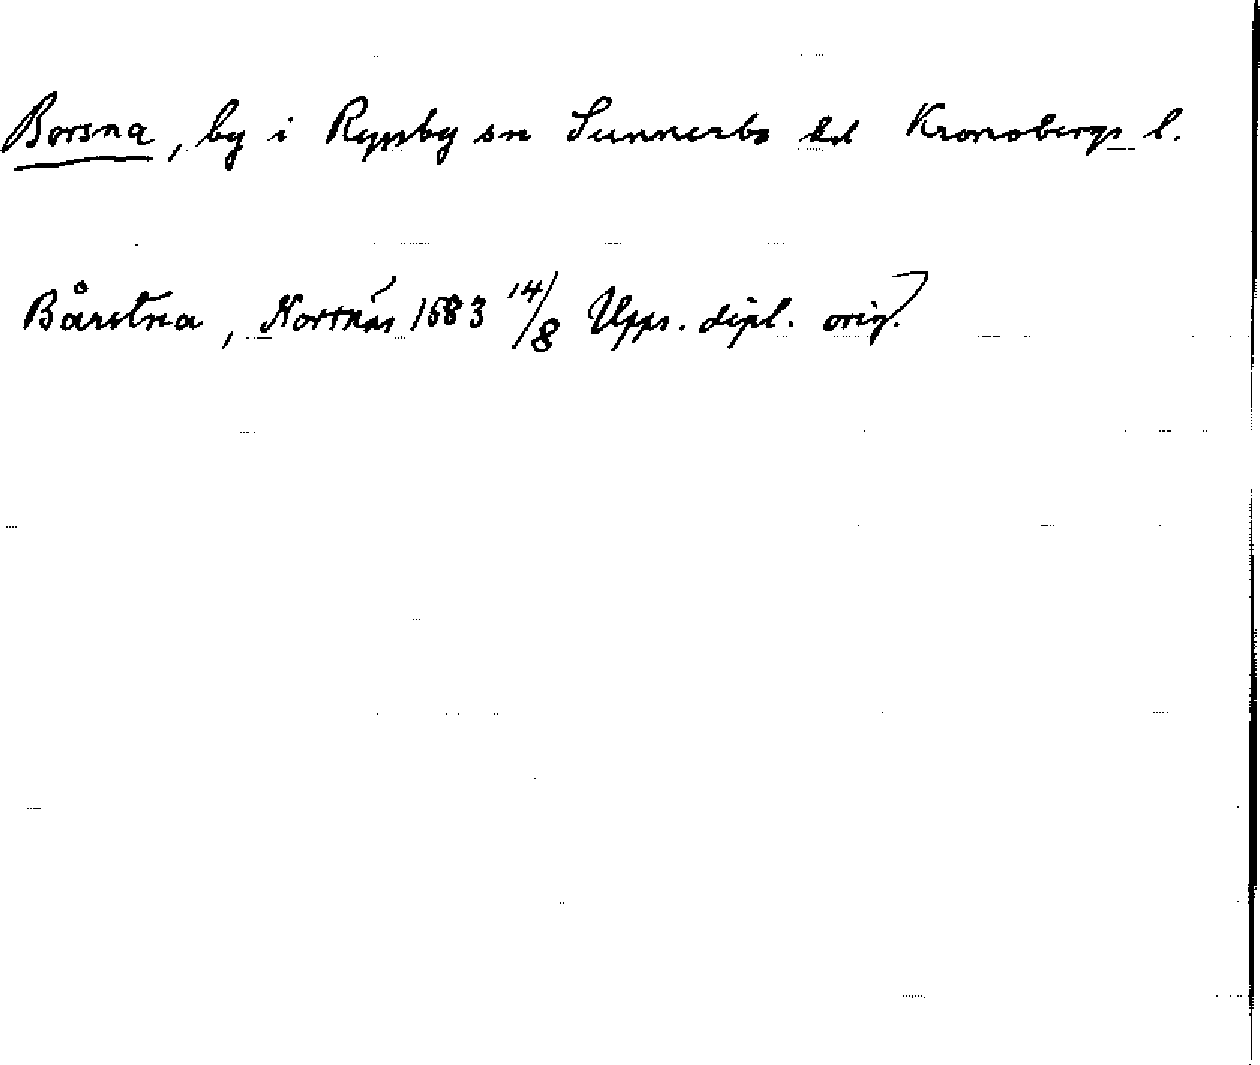 Borsna, by i Ryssby sn Sunnerbo hd Kronobergs l.
Bårstna, Nortnäs 1583 14/8 Upps. dipl. orig.